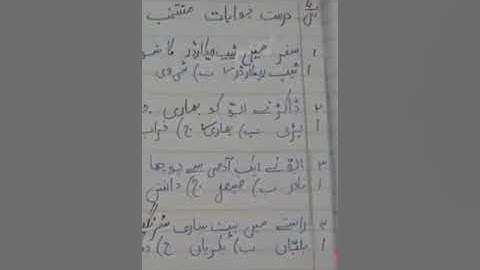 س۴ درست جوابات منتخب
۱ سفر میں ٹیپ ریکارڈر کا
ا) ٹیپ ریکارڈر ب) ٹی وی
۲ ڈاکڑ نے ابو کو بھاری
ا بڑی ب) بھاری ج) خراب
۳ ابو نے ایک آدمی سے پوچھا
ا نادر ب) فیصل ج) دانش
۴ راستے میں بہت ساری
ا بلیاں ب) بکریاں ج)